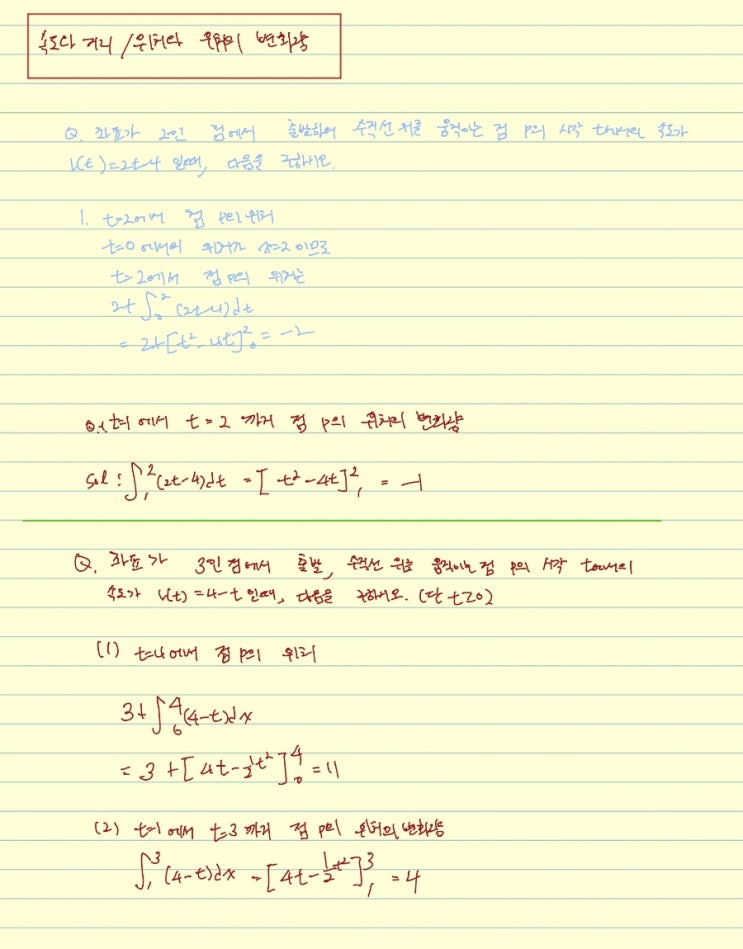 속도와 거리 / 위치와 위치의 변화량
Q. 좌표가 2인 점에서 출발하여 수직선 위를 움직이는 점 P의 시각 t에서의 속도가
v(t)=2t-4 일때, 다음을 구하시오.
1. t=2에서 점 P의 위치
t=0 에서의 위치가 x=2 이므로
t=2에서 점 P의 위치는
2+∫₀²(2t-4)dt
= 2+[t²-4t]²₀ = -2
t=1 에서 t=2 까지 점 P의 위치의 변화량
Sol : ∫₁²(2t-4)dt = [t²-4t]²₁ = -1
Q. 좌표가 3인 점에서 출발, 수직선 위를 움직이는 점 P의 시각 t에서의
속도가 v(t)=4-t 일때, 다음을 구하시오. (단 t≥0)
(1) t=4에서 점 P의 위치
3+∫₀⁴(4-t)dx
= 3+[4t-½t²]⁴₀ = 11
(2) t=1에서 t=3 까지 점 P의 위치의 변화량
∫₁³(4-t)dx = [4t-½t²]³₁ = 4